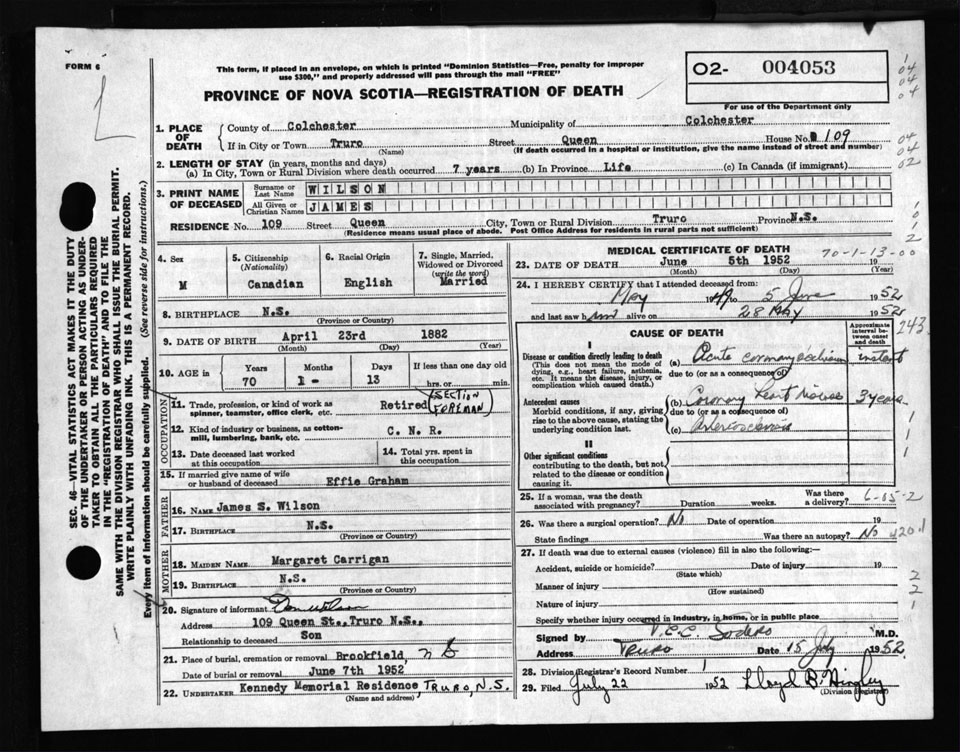 FORM 6
This form, if placed in an envelope, on which is printed "Dominion Statistics—Free, penalty for improper
use $300," and properly addressed will pass through the mail "FREE"
O2- 004053
For use of the Department only
PROVINCE OF NOVA SCOTIA—REGISTRATION OF DEATH
1. PLACE OF DEATH
County of Colchester Municipality of Colchester
If in City or Town Truro Street Queen House No. 109
(Name) (If death occurred in a hospital or institution, give the name instead of street and number)
2. LENGTH OF STAY (in years, months and days)
(a) In City, Town or Rural Division where death occurred 7 years (b) In Province Life (c) In Canada (if immigrant)
3. PRINT NAME OF DECEASED
Surname or Last Name WILSON
All Given or Christian Names JAMES
RESIDENCE No. 109 Street Queen City, Town or Rural Division Truro Province N.S.
(Residence means usual place of abode. Post Office Address for residents in rural parts not sufficient)
4. Sex M
5. Citizenship (Nationality) Canadian
6. Racial Origin English
7. Single, Married, Widowed or Divorced (write the word) Married
8. BIRTHPLACE N.S.
(Province or Country)
9. DATE OF BIRTH April 23rd 1882
(Month) (Day) (Year)
10. AGE in Years Months Days If less than one day old
70 1 - 13 hrs. or min.
OCCUPATION
11. Trade, profession, or kind of work as spinner, teamster, office clerk, etc. Retired (SECTION FOREMAN)
12. Kind of industry or business, as cotton-mill, lumbering, bank, etc. C. N. R.
13. Date deceased last worked at this occupation
14. Total yrs. spent in this occupation
15. If married give name of wife or husband of deceased Effie Graham
FATHER
16. NAME James S. Wilson
17. BIRTHPLACE N.S.
(Province or Country)
MOTHER
18. MAIDEN NAME Margaret Carrigan
19. BIRTHPLACE N.S.
(Province or Country)
20. Signature of informant Don Wilson
Address 109 Queen St., Truro N.S.,
Relationship to deceased Son
21. Place of burial, cremation or removal Brookfield, N S
Date of burial or removal June 7th 1952
22. UNDERTAKER Kennedy Memorial Residence TRURO, N.S.
(Name and address)
MEDICAL CERTIFICATE OF DEATH
70-1-13-00
23. DATE OF DEATH June 5th 1952
(Month) (Day) (Year)
24. I HEREBY CERTIFY that I attended deceased from:
May 1949 to 5 June 1952
and last saw him alive on 28 May 1952
CAUSE OF DEATH
Approximate interval between onset and death
243
I
Disease or condition directly leading to death
(This does not mean the mode of dying, e.g., heart failure, asthenia, etc. It means the disease, injury, or complication which caused death.)
(a) Acute coronary occlusion instant
due to (or as a consequence of)
Antecedent causes
Morbid conditions, if any, giving rise to the above cause, stating the underlying condition last.
(b) Coronary heart disease 3 years
due to (or as a consequence of)
(c) Arteriosclerosis
II
Other significant conditions
contributing to the death, but not related to the disease or condition causing it.
25. If a woman, was the death associated with pregnancy? Duration weeks. Was there a delivery?
6-05-2
26. Was there a surgical operation? No Date of operation 19
State findings Was there an autopsy? No
420.1
27. If death was due to external causes (violence) fill in also the following:—
Accident, suicide or homicide? Date of injury 19
(State which)
Manner of injury
(How sustained)
Nature of injury
Specify whether injury occurred in industry, in home, or in public place
Signed by M.D.
Address Truro Date 15 July 1952
28. Division Registrar's Record Number 1
29. Filed July 22 1952 Lloyd B. Hingley
(Division Registrar)
SEC. 46—VITAL STATISTICS ACT MAKES IT THE DUTY
OF THE UNDERTAKER OR PERSON ACTING AS UNDER-
TAKER TO OBTAIN ALL THE PARTICULARS REQUIRED
IN THE "REGISTRATION OF DEATH" AND TO FILE THE
SAME WITH THE DIVISION REGISTRAR WHO SHALL ISSUE THE BURIAL PERMIT.
WRITE PLAINLY WITH UNFADING INK. THIS IS A PERMANENT RECORD.
Every item of information should be carefully supplied. (See reverse side for instructions.)